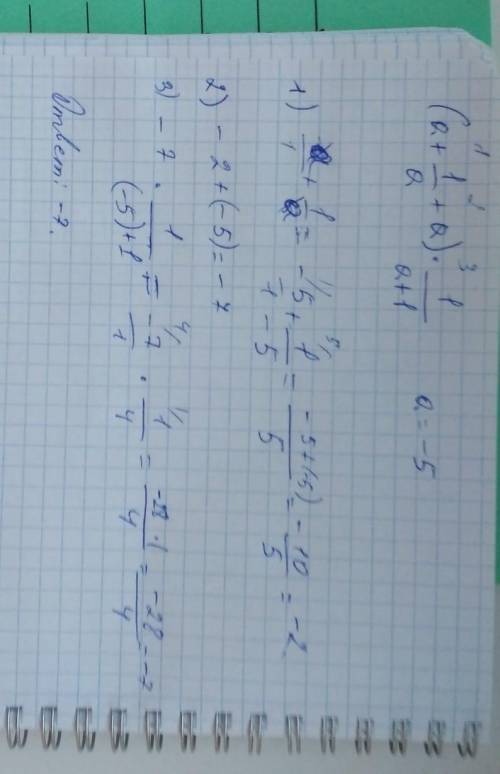 (a + 1/a + a) · 1/(a+1)    a = -5
1) a/1 + 1/a = -5/1 + 1/-5 = (-5+(-5))/5 = -10/5 = -2
2) -2+(-5) = -7
3) -7 · 1/((-5)+1) = -7/1 · 1/4 = (-28·1)/4 = -28/4 = -7
Ответ: -7.